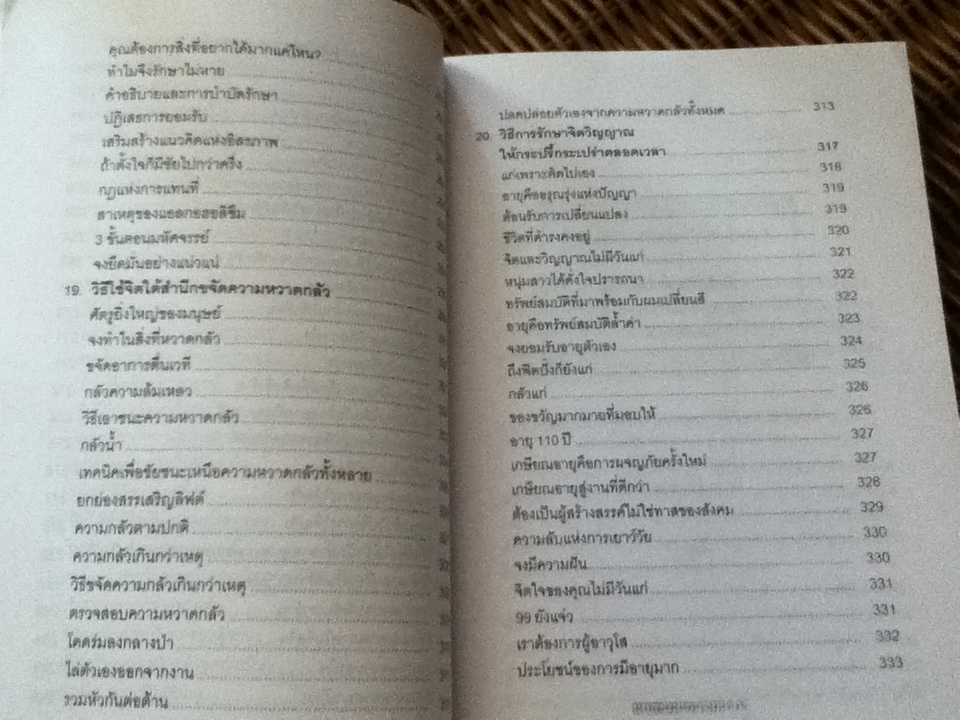 คุณต้องการสิ่งที่อยากได้มากแค่ไหน?
ทำไมจึงรักษาไม่หาย
คำอธิบายและการบำบัดรักษา
ปฏิเสธการยอมรับ
เสริมสร้างแนวคิดแห่งอิสรภาพ
ถ้าตั้งใจก็มีชัยไปกว่าครึ่ง
กฎแห่งการแทนที่
สาเหตุของแอลกอฮอลิซึม
3 ขั้นตอนมหัศจรรย์
จงยึดมั่นอย่างแน่วแน่
19. วิธีใช้จิตใต้สำนึกขจัดความหวาดกลัว
ศัตรูยิ่งใหญ่ของมนุษย์
จงทำในสิ่งที่หวาดกลัว
ขจัดอาการตื่นเวที
กลัวความล้มเหลว
วิธีเอาชนะความหวาดกลัว
กลัวน้ำ
เทคนิคเพื่อชัยชนะเหนือความหวาดกลัวทั้งหลาย
ยกย่องสรรเสริญลิฟต์
ความกลัวตามปกติ
ความกลัวเกินกว่าเหตุ
วิธีขจัดความกลัวเกินกว่าเหตุ
ตรวจสอบความหวาดกลัว
โดดร่มลงกลางป่า
ไล่ตัวเองออกจากงาน
รวมหัวกันต่อต้าน
ปลดปล่อยตัวเองจากความหวาดกลัวทั้งหมด 313
20. วิธีการรักษาจิตวิญญาณ
ให้กระปรี้กระเปร่าตลอดเวลา 317
แก่เพราะคิดไปเอง 318
อายุคืออรุณรุ่งแห่งปัญญา 319
ต้อนรับการเปลี่ยนแปลง 319
ชีวิตที่ดำรงคงอยู่ 320
จิตและวิญญาณไม่มีวันแก่ 321
หนุ่มสาวได้ดั่งใจปรารถนา 322
ทรัพย์สมบัติที่มาพร้อมกับผมเปลี่ยนสี 322
อายุคือทรัพย์สมบัติล้ำค่า 323
จงยอมรับอายุตัวเอง 324
ถึงฟิตปั๋งก็ยังแก่ 325
กลัวแก่ 326
ของขวัญมากมายที่มอบให้ 326
อายุ 110 ปี 327
เกษียณอายุคือการผจญภัยครั้งใหม่ 327
เกษียณอายุสู่งานที่ดีกว่า 328
ต้องเป็นผู้สร้างสรรค์ไม่ใช่ทาสของสังคม 329
ความลับแห่งการเยาว์วัย 330
จงมีความฝัน 330
จิตใจของคุณไม่มีวันแก่ 331
99 ยังแจ๋ว 331
เราต้องการผู้อาวุโส 332
ประโยชน์ของการมีอายุมาก 333